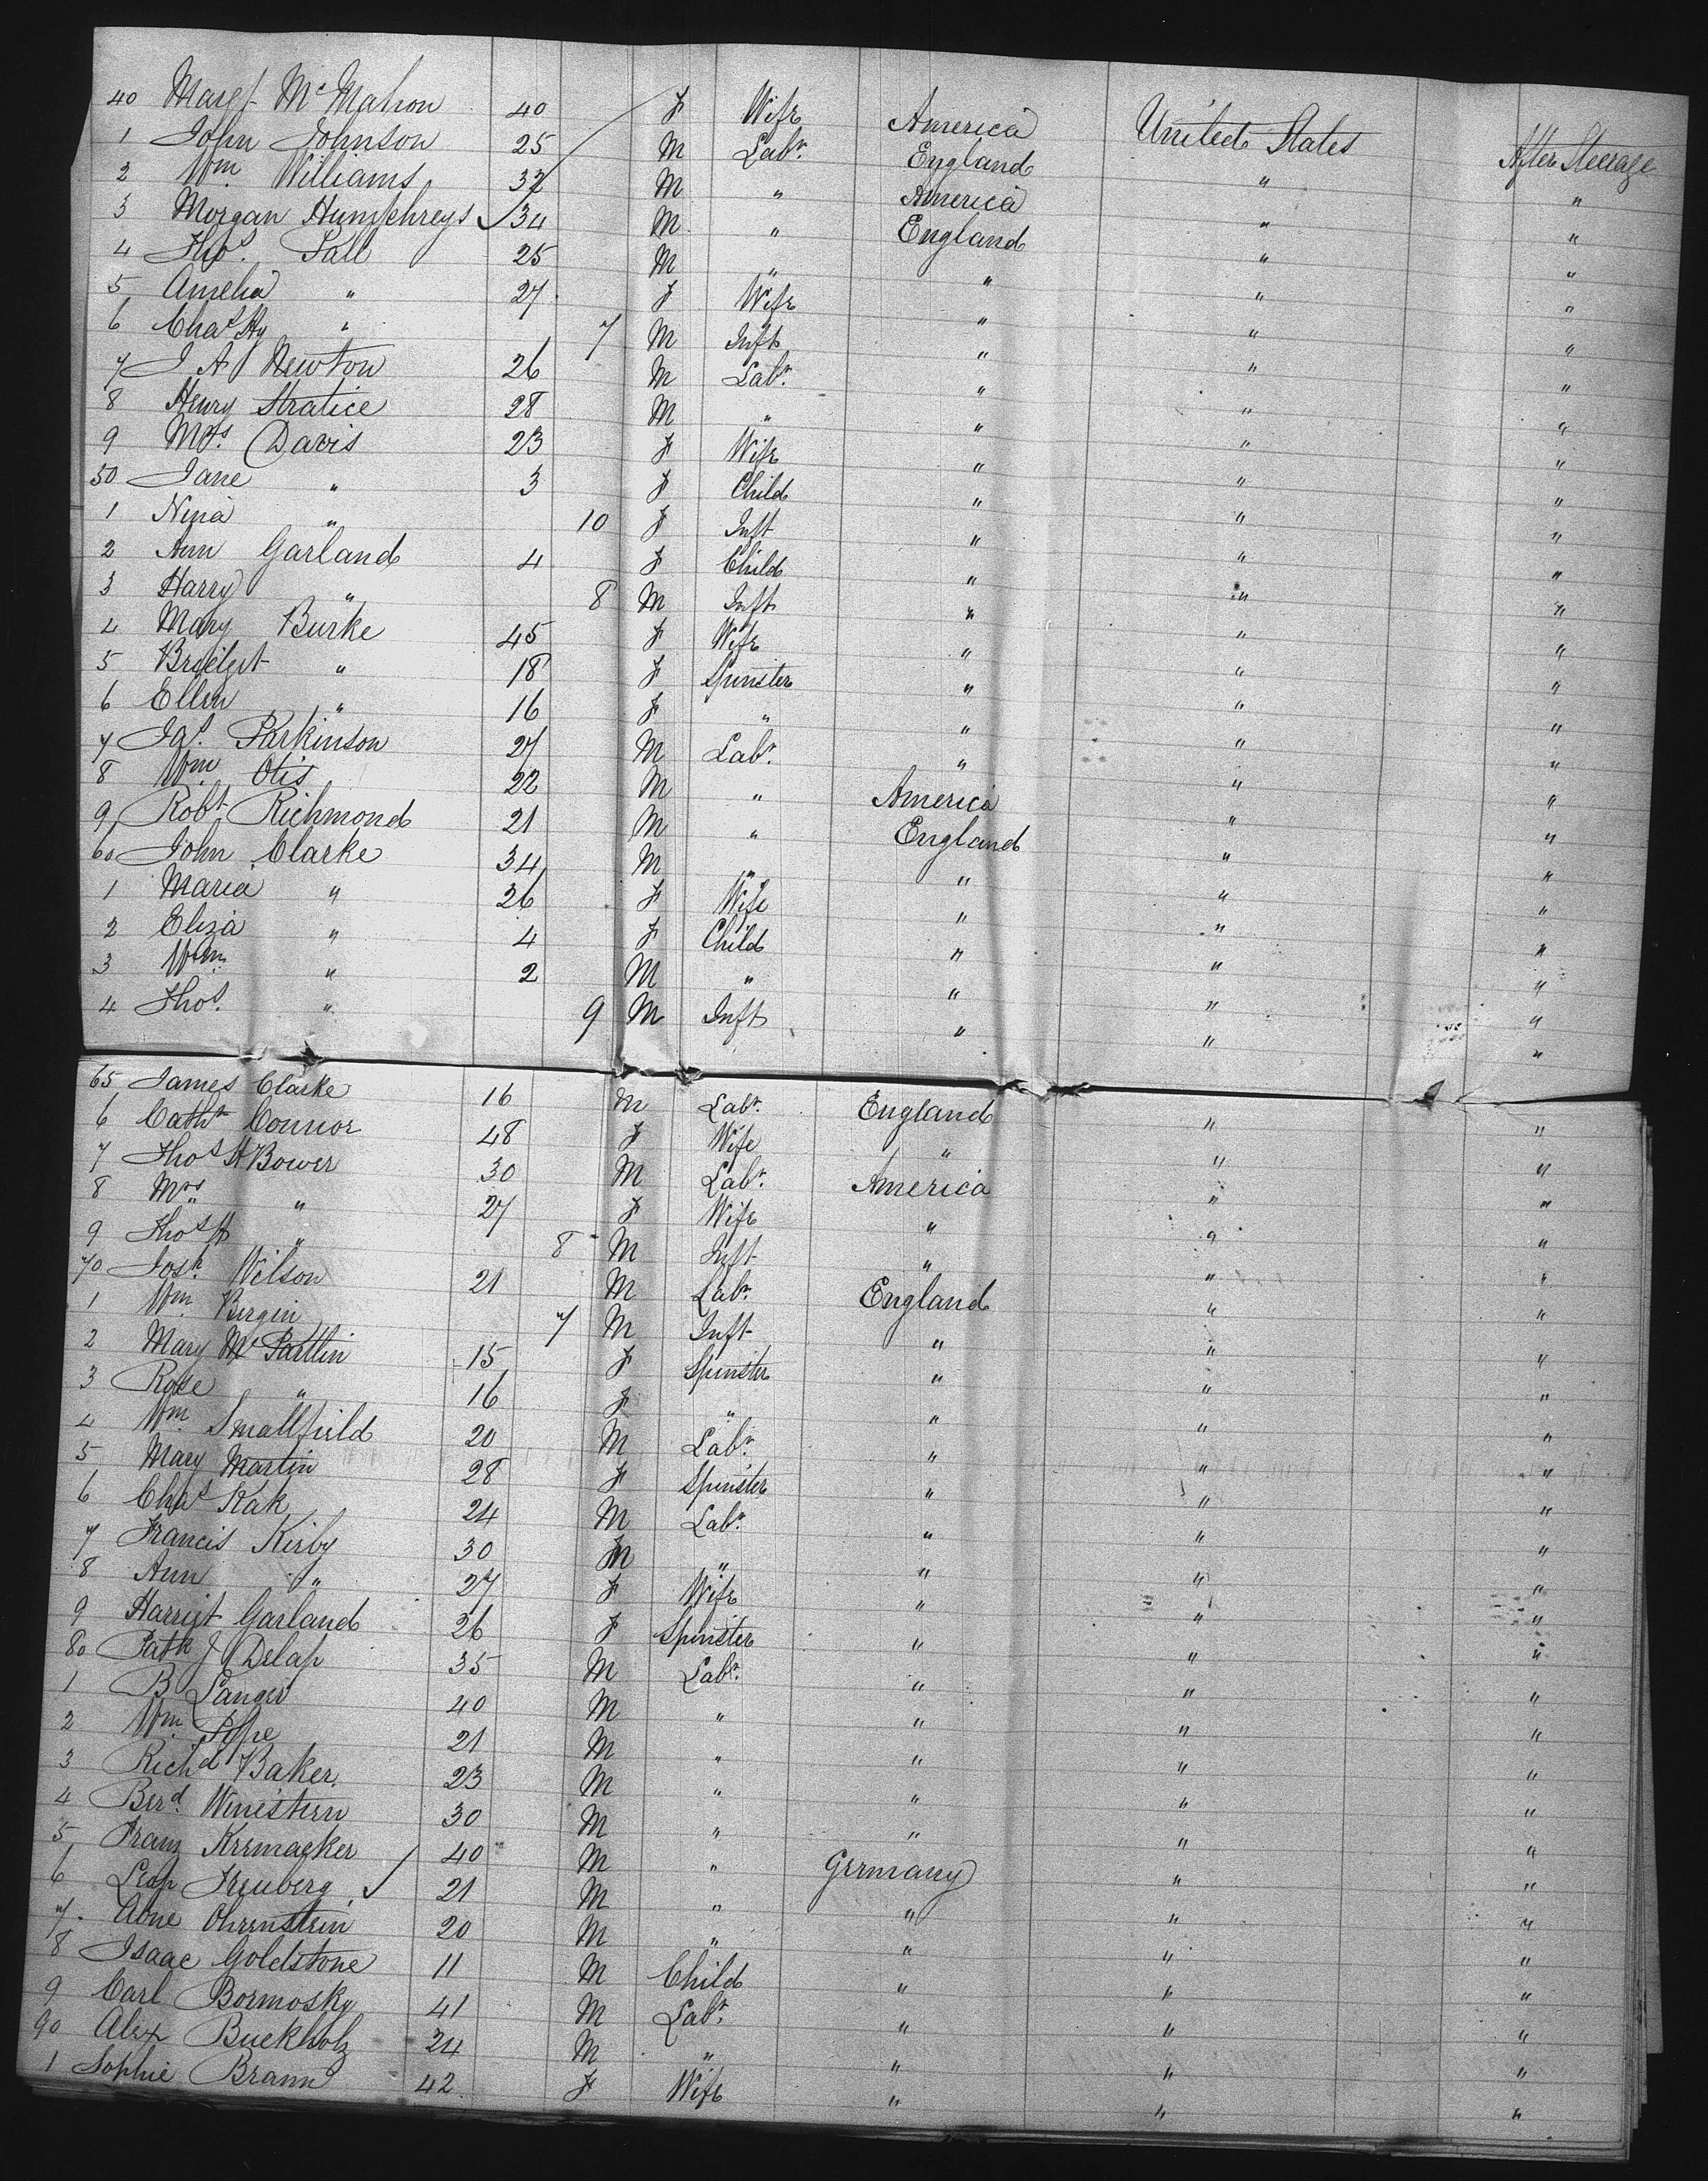 40 Margt McMahon 40 F Wife America United States After Steerage
1 John Johnson 25 M Labr. England " "
2 Wm Williams 32 M " America " "
3 Morgan Humphreys 34 M " England " "
4 Thos. Pall 25 M " " " "
5 Amelia " 27 F Wife " " "
6 Chas Hy " 7 M Inft " " "
7 J A Newton 26 M Labr. " " "
8 Henry Stratice 28 M " " " "
9 Mrs. Davis 23 F Wife " " "
50 Jane " 3 F Child " " "
1 Nina " 10 F Inft " " "
2 Ann Garland 4 F Child " " "
3 Harry " 8 M Inft " " "
4 Mary Burke 45 F Wife " " "
5 Bridget " 18 F Spinster " " "
6 Ellen " 16 F " " " "
7 Jas. Parkinson 27 M Labr. " " "
8 Wm Otis 22 M " America " "
9 Robt Richmond 21 M " England " "
60 John Clarke 34 M " " " "
1 Maria " 26 F Wife " " "
2 Eliza " 4 F Child " " "
3 Wm. " 2 M " " " "
4 Thos. " 9 M Inft " " "
65 James Clarke 16 M Labr. England " "
6 Cathe Connor 48 F Wife " " "
7 Thos H Bower 30 M Labr. America " "
8 Mrs " 27 F Wife " " "
9 Thos H " 8 M Inft " " "
70 Josh. Wilson 21 M Labr. England " "
1 Wm Bergin 7 M Inft " " "
2 Mary McPartlin 15 F Spinster " " "
3 Rose " 16 F " " " "
4 Wm. Smallfield 20 M Labr. " " "
5 Mary Martin 28 F Spinster " " "
6 Chas Kak 24 M Labr. " " "
7 Francis Kirby 30 M " " " "
8 Ann " 27 F Wife " " "
9 Harriet Garland 26 F Spinster " " "
80 Patk J Delap 35 M Labr. " " "
1 B Langer 40 M " " " "
2 Wm Pope 21 M " " " "
3 Richd Baker 23 M " " " "
4 Berd. Winestern 30 M " " " "
5 Franz Krrmacker 40 M " Germany " "
6 Leop Freuberg 21 M " " " "
7 Abne Ohrenstein 20 M " " " "
8 Isaac Goldstone 11 M Child " " "
9 Carl Bormosky 41 M Labr. " " "
90 Alex Buckholz 24 M " " " "
1 Sophie Brann 42 F Wife " " "